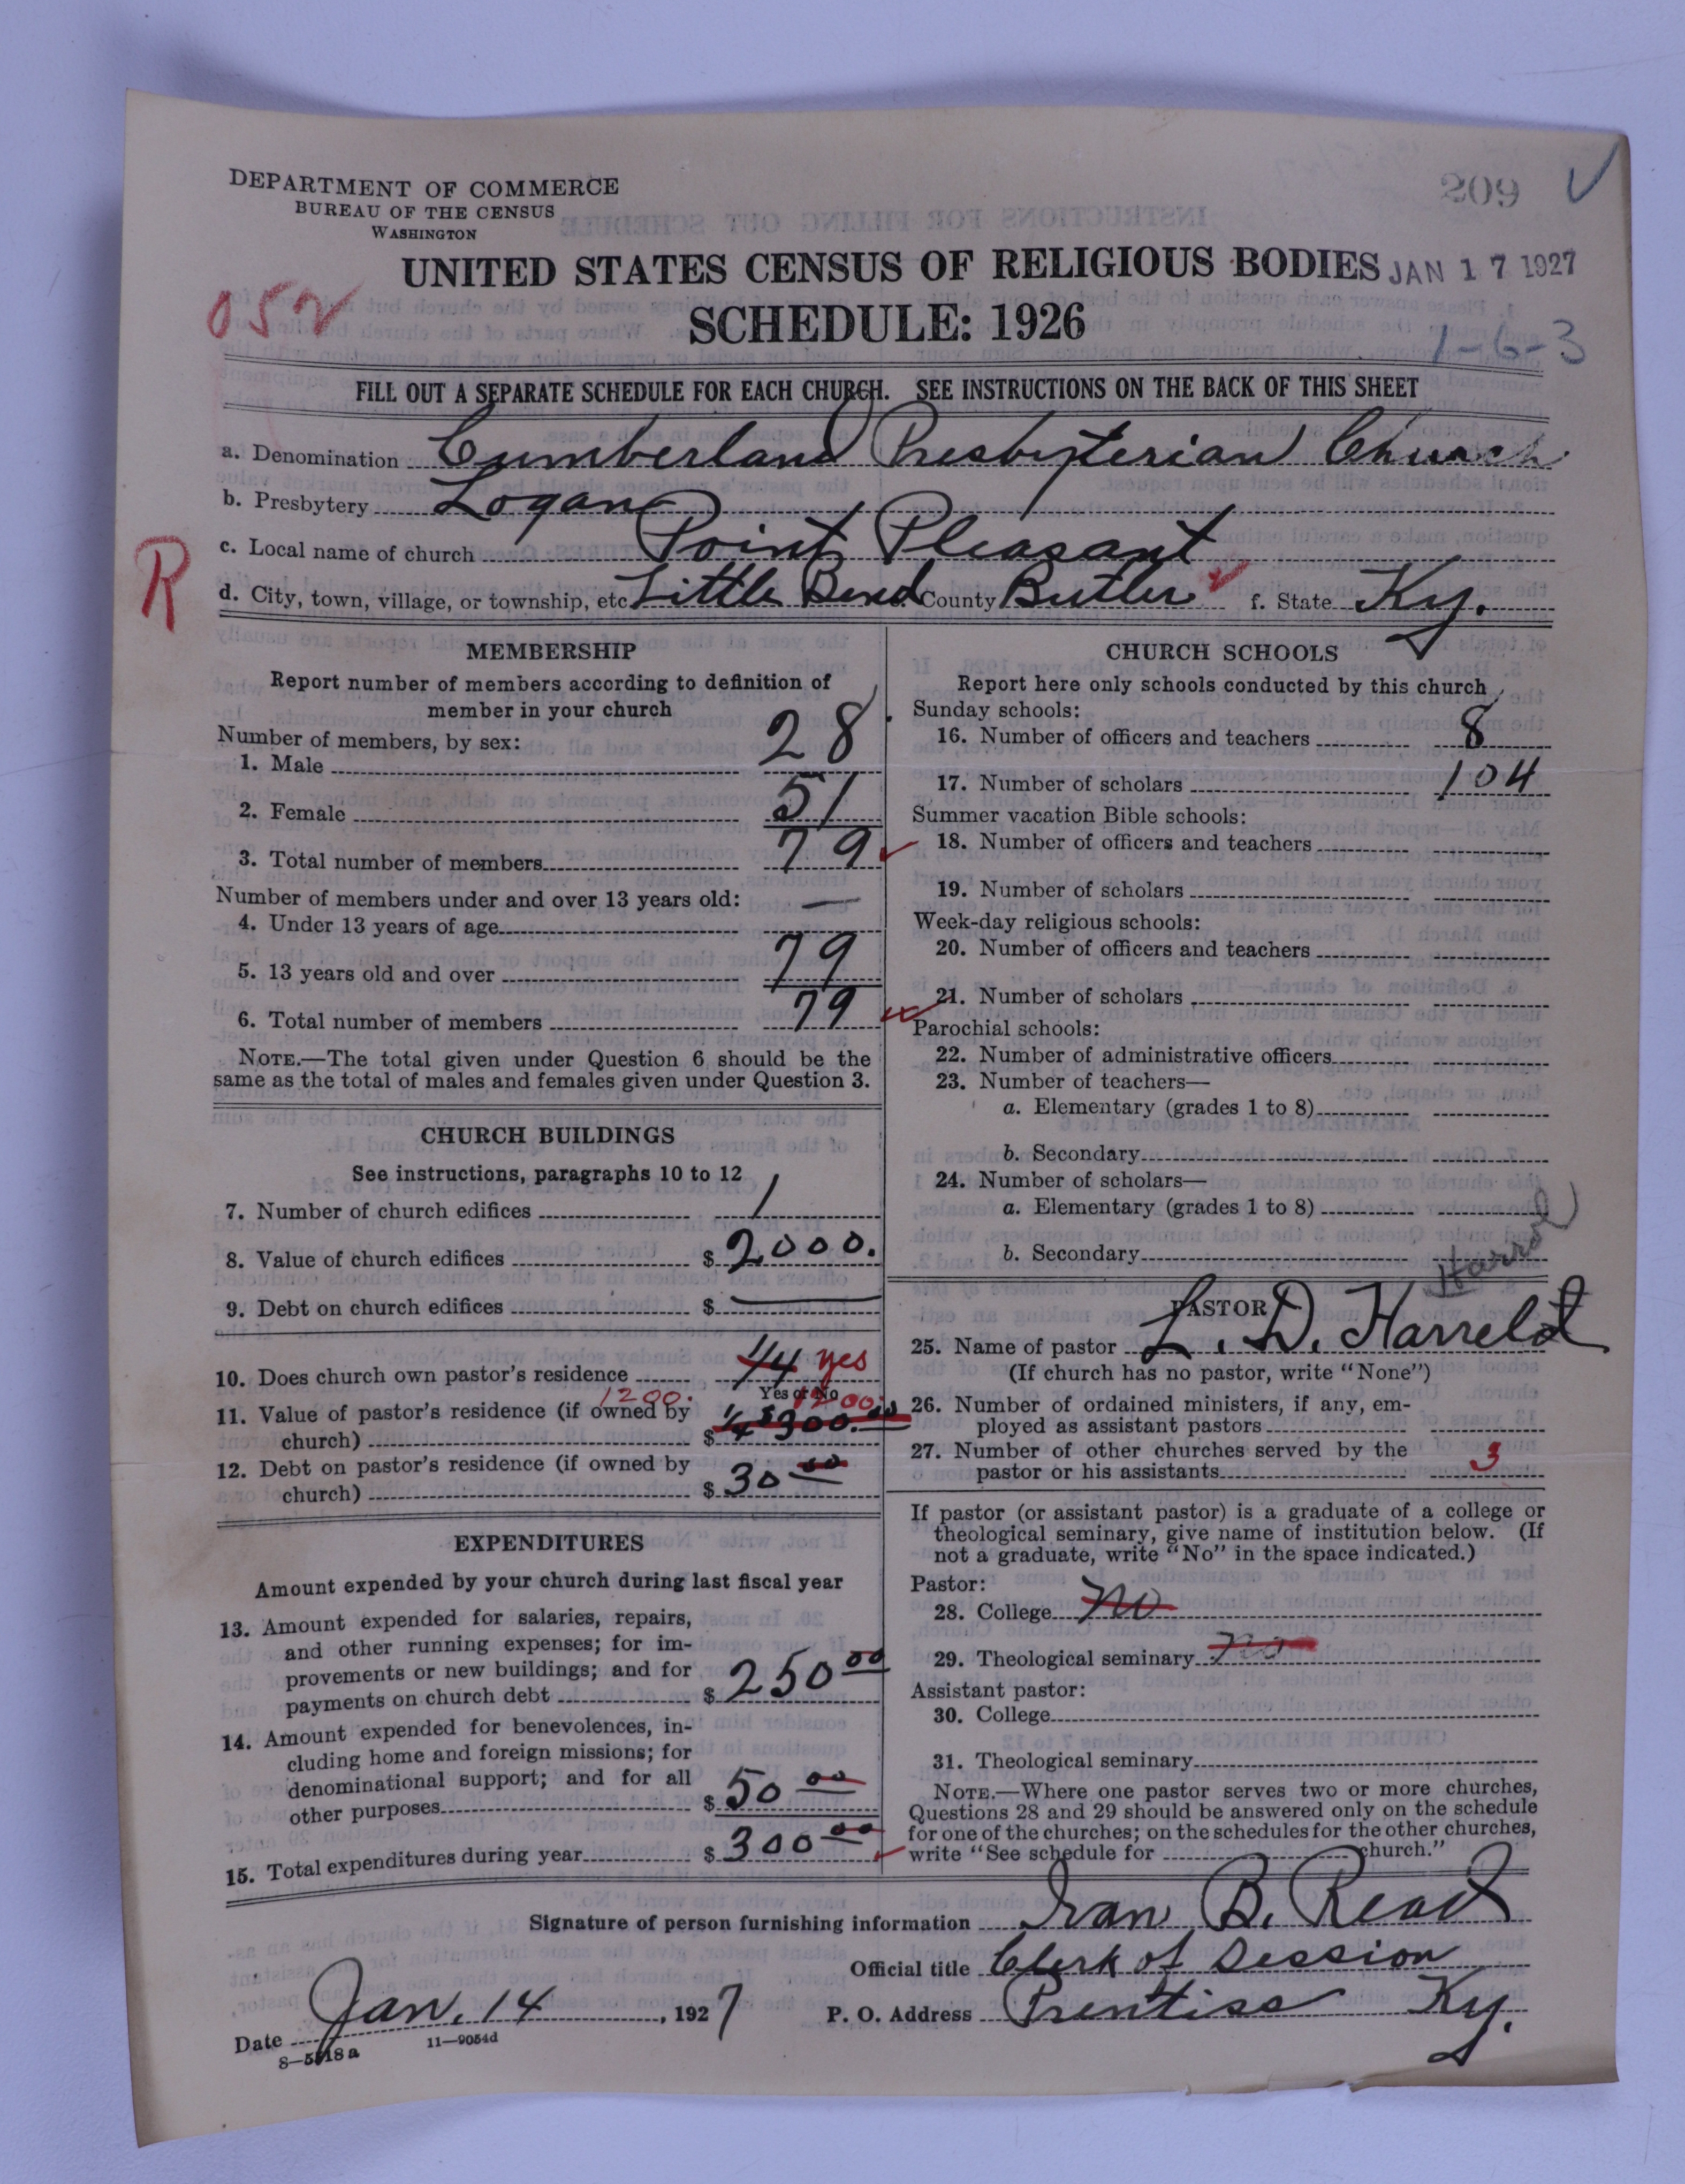 DEPARTMENT OF COMMERCE
BUREAU OF THE CENSUS
WASHINGTON
209
UNITED STATES CENSUS OF RELIGIOUS BODIES
JAN 17 1927
052
SCHEDULE: 1926
1-6-3
FILL OUT A SEPARATE SCHEDULE FOR EACH CHURCH. SEE INSTRUCTIONS ON THE BACK OF THIS SHEET
a. Denomination Cumberland Presbyterian Church
b. Presbytery Logan
c. Local name of church Point Pleasant
R
d. City, town, village, or township, etc. Little Bend e. County Butler f. State Ky.
MEMBERSHIP
Report number of members according to definition of
member in your church
Number of members, by sex:
1. Male 28
2. Female 51
3. Total number of members 79
Number of members under and over 13 years old:
4. Under 13 years of age —
5. 13 years old and over 79
6. Total number of members 79
NOTE.—The total given under Question 6 should be the
same as the total of males and females given under Question 3.
CHURCH BUILDINGS
See instructions, paragraphs 10 to 12
7. Number of church edifices 1
8. Value of church edifices $ 2000.
9. Debt on church edifices $ —
10. Does church own pastor's residence 1/4 yes
Yes or No
1200. 1200
11. Value of pastor's residence (if owned by
church) $ 1/4 $300.00
12. Debt on pastor's residence (if owned by
church) $ 30 00
EXPENDITURES
Amount expended by your church during last fiscal year
13. Amount expended for salaries, repairs,
and other running expenses; for im-
provements or new buildings; and for
payments on church debt $ 250 00
14. Amount expended for benevolences, in-
cluding home and foreign missions; for
denominational support; and for all
other purposes $ 50 00
15. Total expenditures during year $ 300 00
CHURCH SCHOOLS
Report here only schools conducted by this church
Sunday schools:
16. Number of officers and teachers 8
17. Number of scholars 104
Summer vacation Bible schools:
18. Number of officers and teachers
19. Number of scholars
Week-day religious schools:
20. Number of officers and teachers
21. Number of scholars
Parochial schools:
22. Number of administrative officers
23. Number of teachers—
a. Elementary (grades 1 to 8)
b. Secondary
24. Number of scholars—
a. Elementary (grades 1 to 8)
b. Secondary
Harrold
PASTOR
25. Name of pastor L. D. Harreld
(If church has no pastor, write "None")
26. Number of ordained ministers, if any, em-
ployed as assistant pastors
27. Number of other churches served by the
pastor or his assistants 3
If pastor (or assistant pastor) is a graduate of a college or
theological seminary, give name of institution below. (If
not a graduate, write "No" in the space indicated.)
Pastor:
28. College no
29. Theological seminary no
Assistant pastor:
30. College
31. Theological seminary
NOTE.—Where one pastor serves two or more churches,
Questions 28 and 29 should be answered only on the schedule
for one of the churches; on the schedules for the other churches,
write "See schedule for church."
Signature of person furnishing information Ivan B. Read
Official title Clerk of Session
Date Jan. 14, 1927 P. O. Address Prentiss Ky.
8—5518a 11—9054d